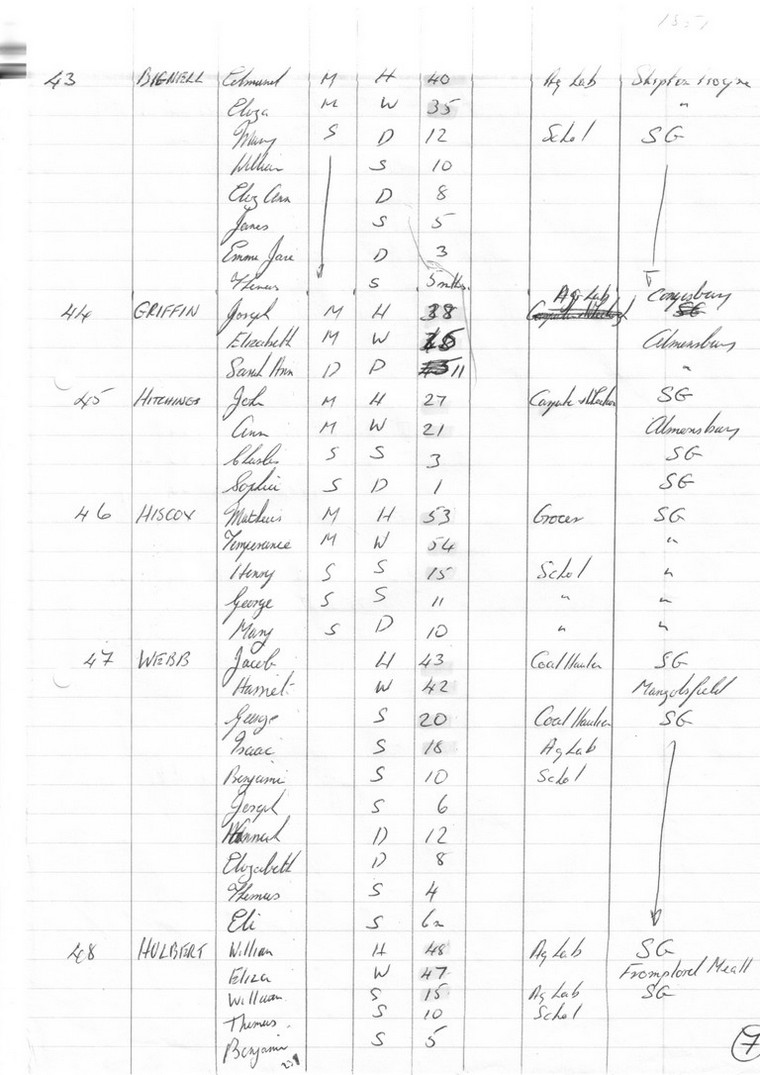 1851
43 BIGNELL Edmund M H 40 Ag Lab Shepton
Eliza M W 35 "
Mary S D 12 Schol SG
William S 10
Eliz Ann D 8
James S 5
Emma Jane D 3
Thomas S 5 mths
44 GRIFFIN Joseph M H 38 Ag Lab Congesbury
Elizabeth M W Almonsbury
Sarah Ann D D 11 "
45 HITCHINGS John M H 27 SG
Ann M W 21 Almonsbury
Charles S S 3 SG
Sophie S D 1 SG
46 HISCOX Mathew M H 53 Grocer SG
Temperance M W 54 "
Henry S S 15 Schol "
George S S 11 " "
Mary S D 10 " "
47 WEBB Jacob H 43 Coal Haulier SG
Harriet W 42 Mangotsfield
George S 20 Coal Haulier SG
Isaac S 18 Ag Lab
Benjami S 10 Schol
Joseph S 6
Hannah D 12
Elizabeth D 8
Thomas S 4
Eli S 6m
48 HULBERT William H 48 Ag Lab SG
Eliza W 47
William S 15 Ag Lab SG
Thomas S 10 Schol
Benjamin S 5
7